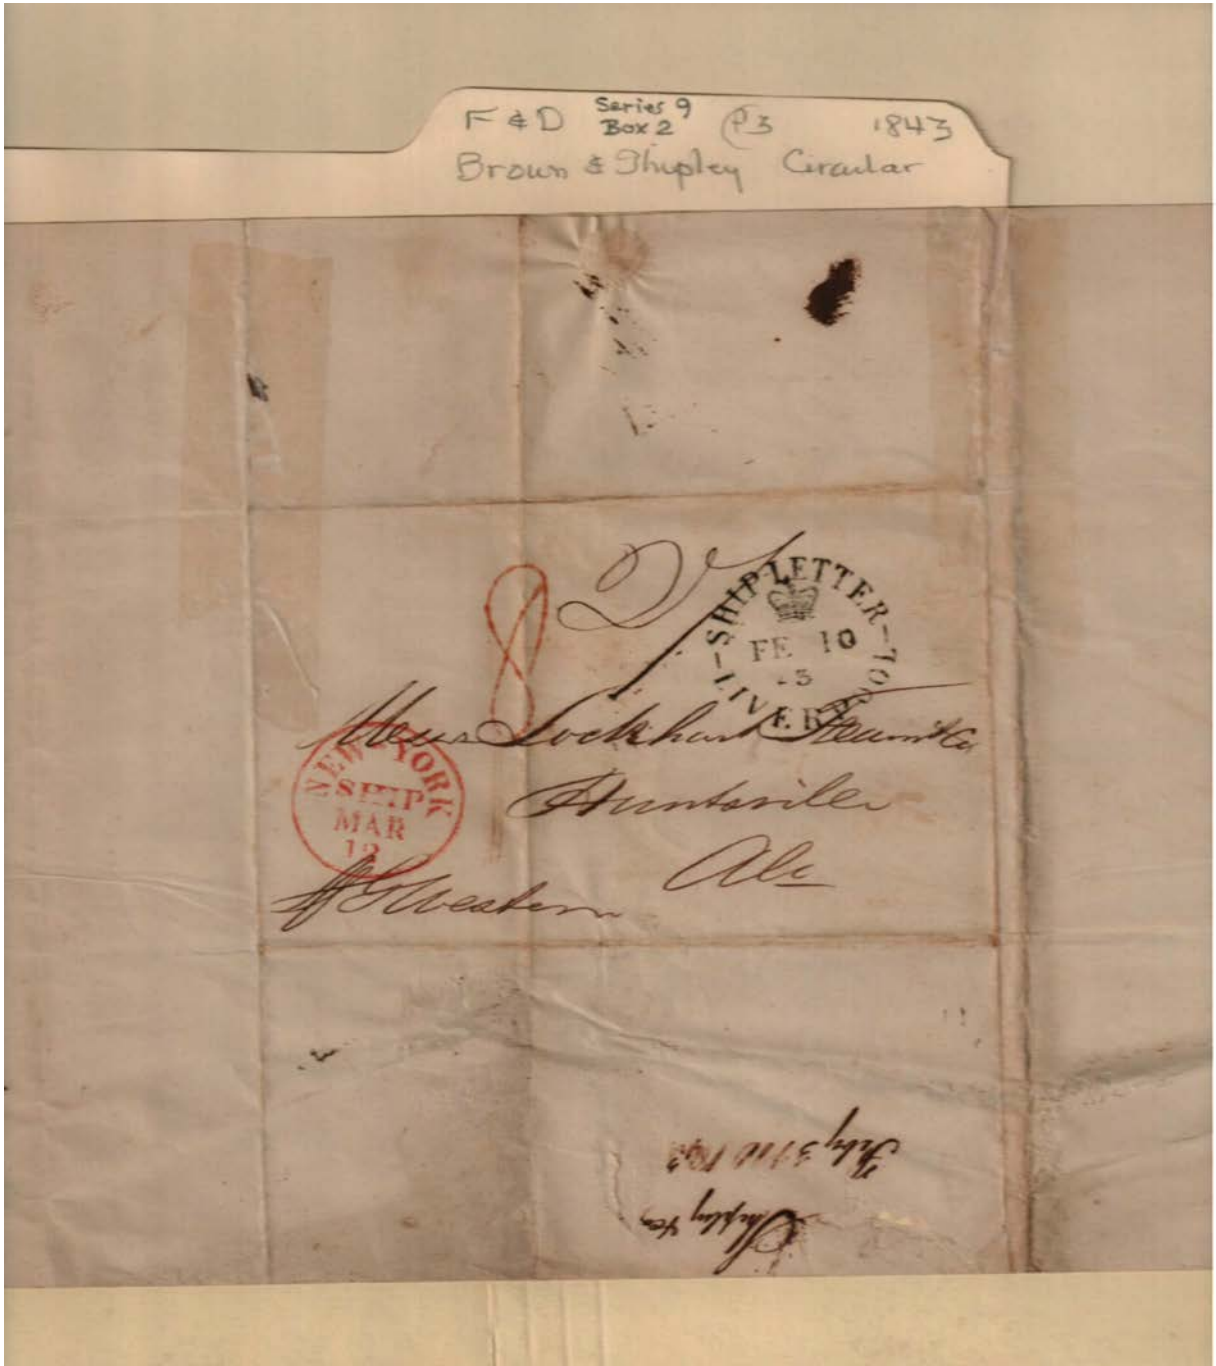 F & D Series 9 Box 2 P3 1843
Brown & Shipley Circular
8
SHIP LETTER
LIVERPOOL
FE 10
Mess Lockhart & Co
Huntsville
Ala
NEW-YORK
SHIP
MAR
12
G Western
Shipley & Co
Feby 3 1843